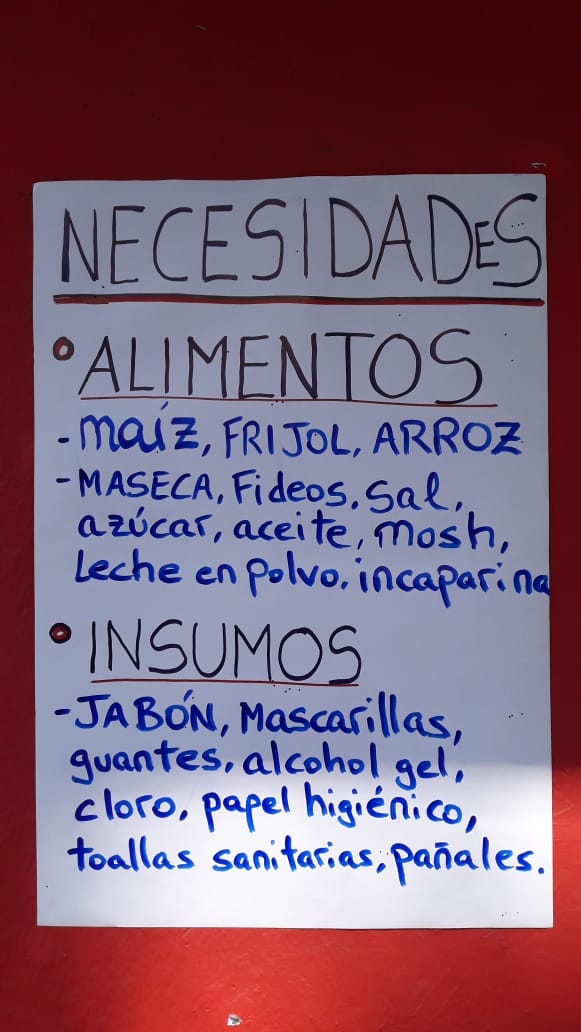 NECESIDADES
• ALIMENTOS
- maíz, FRIJOL, ARROZ
- MASECA, Fideos, Sal,
azúcar, aceite, mosh,
Leche en polvo, incaparina
• INSUMOS
- JABÓN, Mascarillas,
guantes, alcohol gel,
cloro, papel higiénico,
toallas sanitarias, pañales.